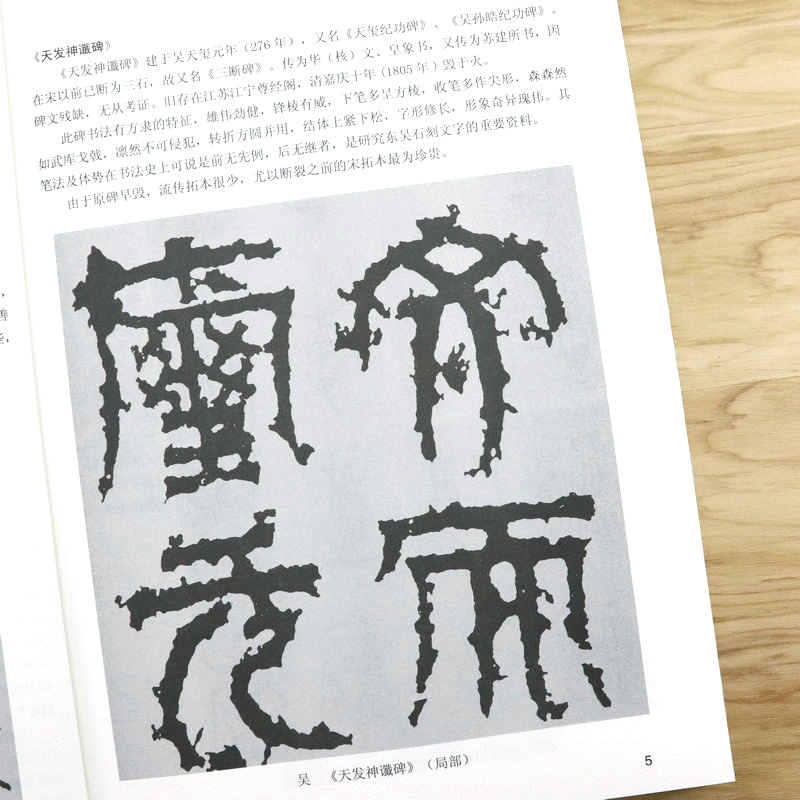 《天发神谶碑》
《天发神谶碑》建于吴天玺元年（276 年），又名《天玺纪功碑》、《吴孙皓纪功碑》。
在宋以前已断为三石，故又名《三断碑》。传为华（核）文、皇象书，又传为苏建所书，因
碑文残缺，无从考证。旧存在江苏江宁尊经阁，清嘉庆十年 (1805 年) 毁于火。
此碑书法有方隶的特征，雄伟劲健，锋棱有威，下笔多呈方棱，收笔多作尖形，森森然
如武库戈戟，凛然不可侵犯，转折方圆并用，结体上紧下松，字形修长，形象奇异瑰伟。其
笔法及体势在书法史上可说是前无先例，后无继者，是研究东吴石刻文字的重要资料。
由于原碑早毁，流传拓本很少，尤以断裂之前的宋拓本最为珍贵。
璽
元
吴 《天发神谶碑》（局部）
5